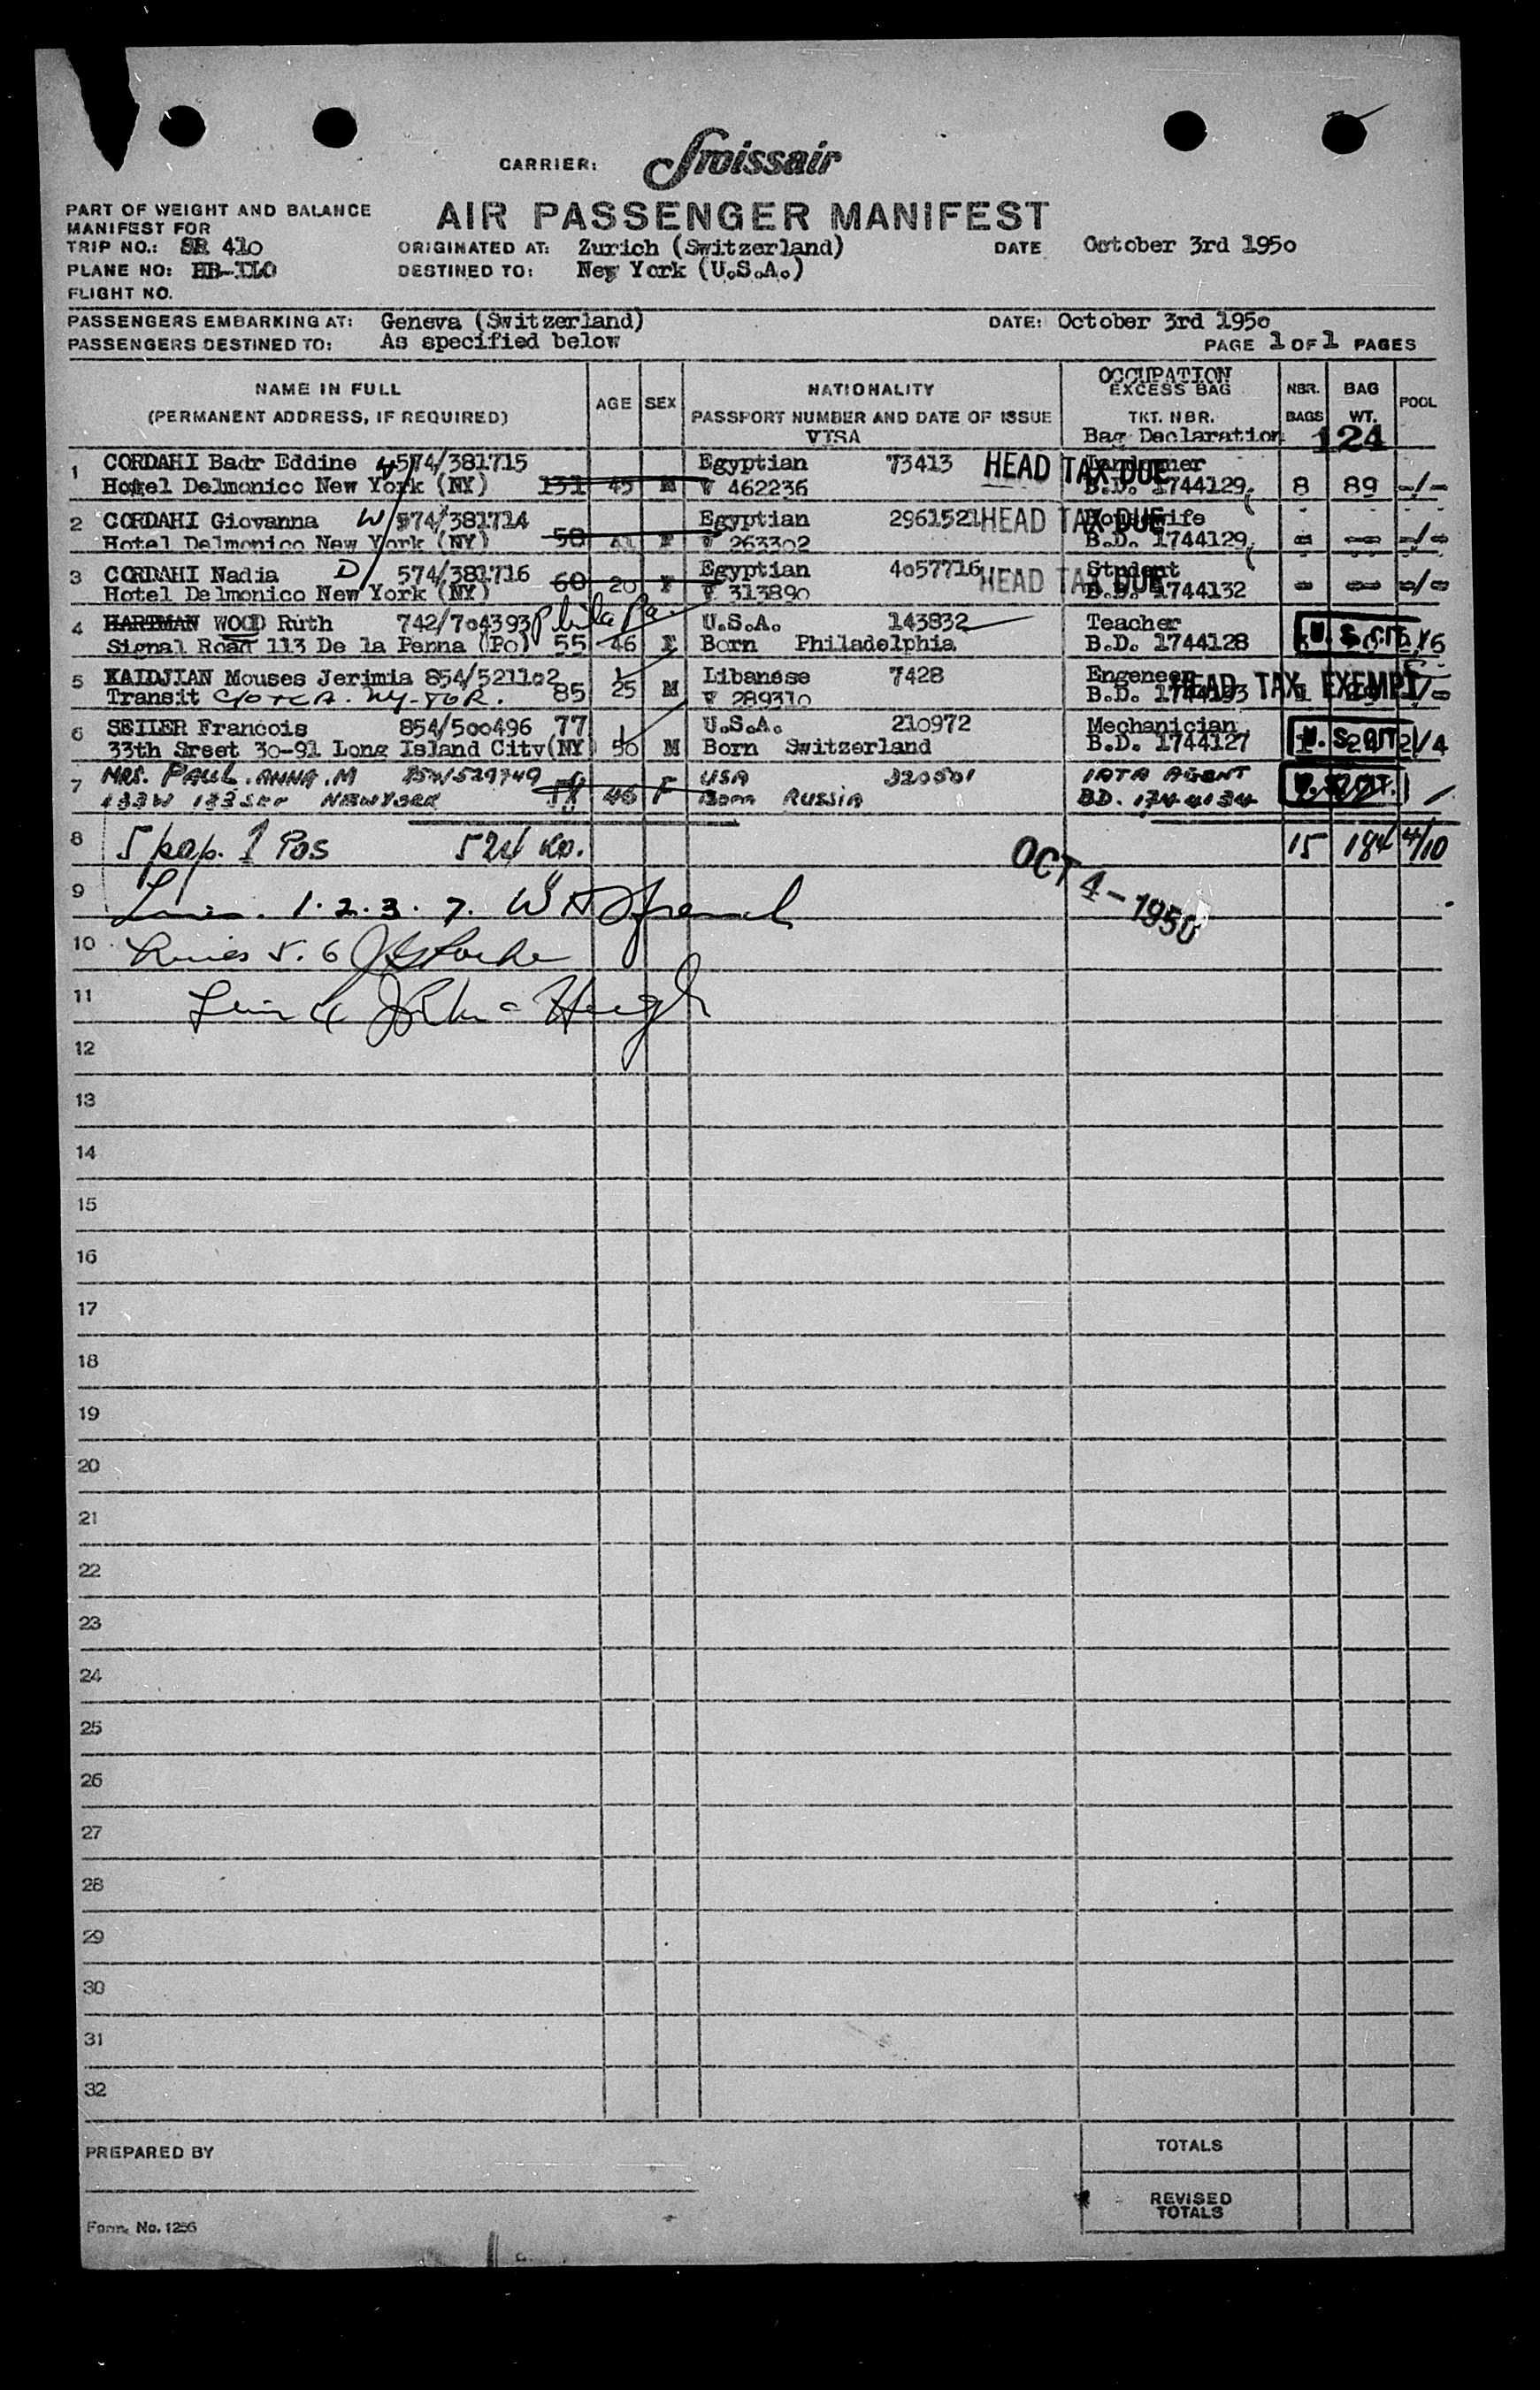 CARRIER: Swissair
PART OF WEIGHT AND BALANCE
MANIFEST FOR
AIR PASSENGER MANIFEST
TRIP NO.: SR 410 ORIGINATED AT: Zurich (Switzerland) DATE October 3rd 1950
PLANE NO: HB-ILO DESTINED TO: New York (U.S.A.)
FLIGHT NO.
PASSENGERS EMBARKING AT: Geneva (Switzerland) DATE: October 3rd 1950
PASSENGERS DESTINED TO: As specified below PAGE 1 OF 1 PAGES
NAME IN FULL
(PERMANENT ADDRESS, IF REQUIRED)
AGE SEX
NATIONALITY
PASSPORT NUMBER AND DATE OF ISSUE
VISA
OCCUPATION
EXCESS BAG
TKT. NBR.
Bag Declaration
NBR.
BAGS
BAG
WT.
POOL
124
1 CORDAHI Badr Eddine 574/381715 Egyptian 73413 HEAD TAX DUE
Hotel Delmonico New York (NY) 131 45 M V 462236 B.D. 1744129 8 89 -/-
2 CORDAHI Giovanna W 574/381714 Egyptian 2961521 HEAD TAX DUE Housewife
Hotel Delmonico New York (NY) 50 F V 263302 B.D. 1744129 - -- -/-
3 CORDAHI Nadia D 574/381716 Egyptian 4057716 HEAD TAX DUE Student
Hotel Delmonico New York (NY) 60 20 F V 313890 B.D. 1744132 - -- -/-
4 HARTMAN WOOD Ruth 742/704393 Phila Pa. U.S.A. 143832 Teacher
Signal Road 113 De la Penna (Po) 55 46 F Born Philadelphia B.D. 1744128 U.S. CIT.
5 KAIDJIAN Mouses Jerimia 854/521102 Libanese 7428 Engeneer
Transit C/O TCA. NY-TOR. 85 25 M V 289310 B.D. HEAD TAX EXEMPT
6 SEILER Francois 854/500496 77 U.S.A. 210972 Mechanician
33th Sreet 30-91 Long Island City (NY) 50 M Born Switzerland B.D. 1744127 U.S. CIT. 2/4
7 MRS. PAUL. ANNA. M 854/529749 USA 320501 IATA AGENT
NEWYORK 46 F Born RUSSIA BD. 1744134 U.S. CIT.
8 5 pap. 1 Pos 524 Ko. 15 184 4/10
OCT 4-1950
9 Lines. 1.2.3.7.
10 Lines 5.6
11
12
13
14
15
16
17
18
19
20
21
22
23
24
25
26
27
28
29
30
31
32
PREPARED BY
TOTALS
REVISED
TOTALS
Form No. 1256